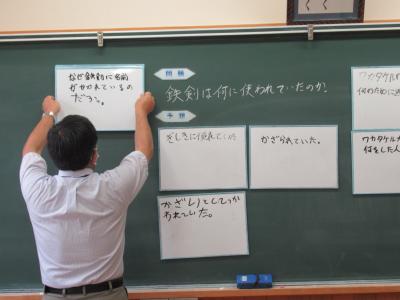 なぜ鉄剣に名前
がかかれているの
だろう。
問題
鉄剣は何に使われていたのか?
予想
ぎしきに使われていた
かざられていた。
かざりとしてつか
われていた。
ワカタケル
何のために
ワカタケル
何をした人